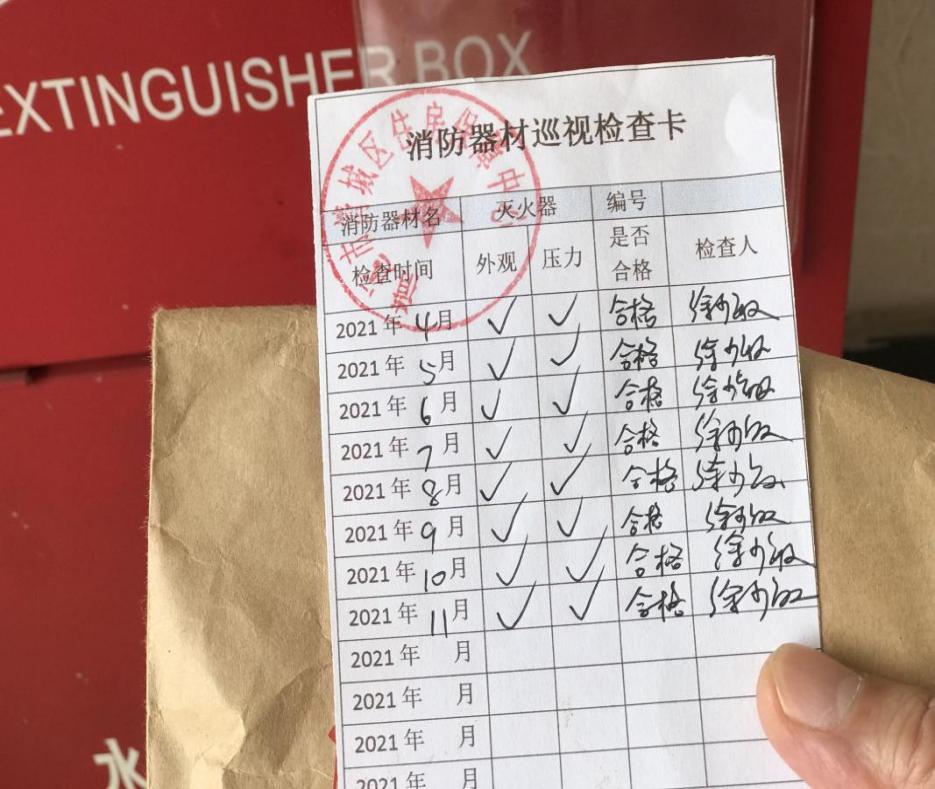 EXTINGUISHER BOX
消防器材巡视检查卡
消防器材名 灭火器 编号
检查时间 外观 压力 是否合格 检查人
2021年4月 ✓ ✓ 合格
2021年5月 ✓ ✓ 合格
2021年6月 ✓ ✓ 合格
2021年7月 ✓ ✓ 合格
2021年8月 ✓ ✓ 合格
2021年9月 ✓ ✓ 合格
2021年10月 ✓ ✓ 合格
2021年11月 ✓ ✓ 合格
2021年 月
2021年 月
2021年 月
2021年 月
水